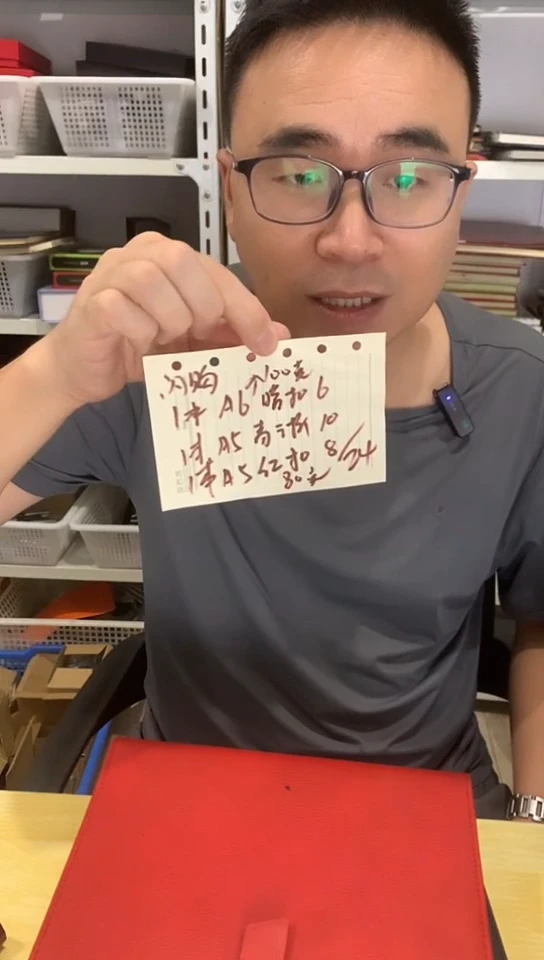 闪购 100克
1本 A6 暗扣 6
1本 A5 10
1本 A5 红扣 8/24
80克